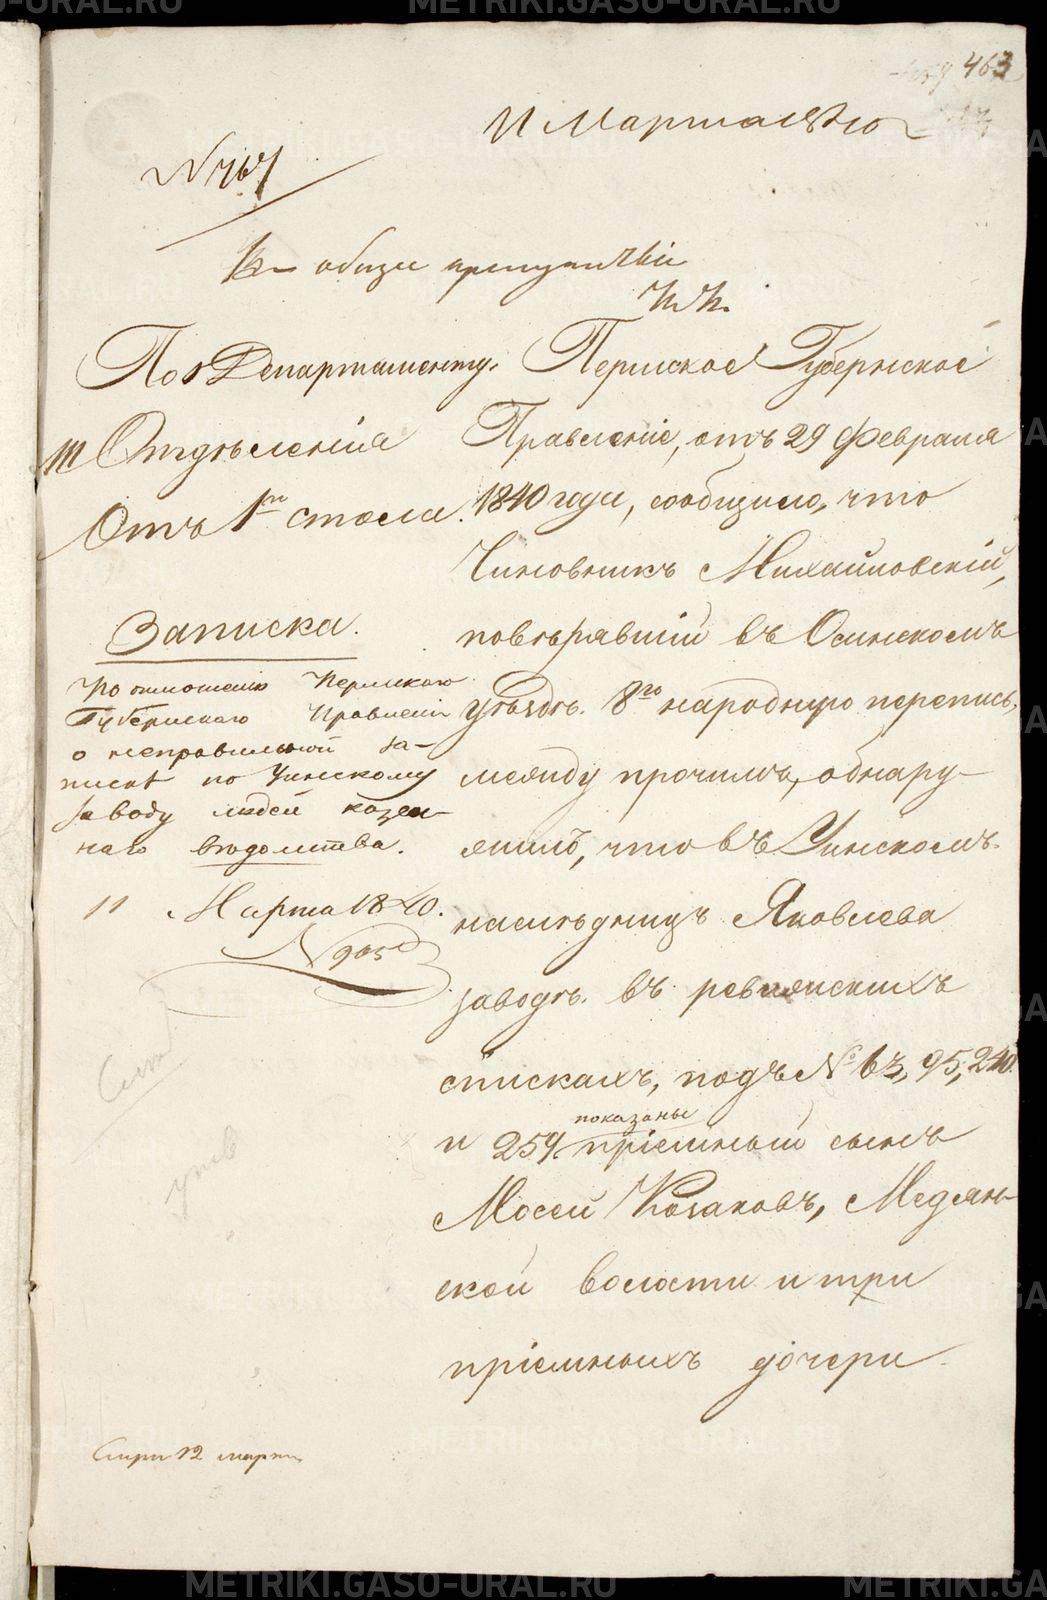 463
11 Марта
№ 767
Къ общи
По Департаменту.
III Отдѣленія
Отъ 1го стола.
Записка.
По отношенію Пермскаго
Губернскаго Правленія
о неправильной за-
писке по Уинскому
заводу людей казен-
наго вѣдомства.
11 Марта 1840.
№ 905
Пермское Губернское
Правленіе, отъ 29 Февраля
1840 года, сообщило, что
Чиновникъ Михайловскій,
повѣрявшій въ Осинскомъ
уѣздѣ 8ю народную перепись,
между прочимъ, обнару-
жилъ, что въ Уинскомъ
наслѣдницъ Яковлева
заводѣ въ ревижскихъ
спискахъ, подъ № 63, 95, 240
и 259 показаны пріемный сынъ
Мосей Козаковъ, Медян-
ской волости и три
пріемныхъ дочери
12 марта
METRIKI.GASO-URAL.RU